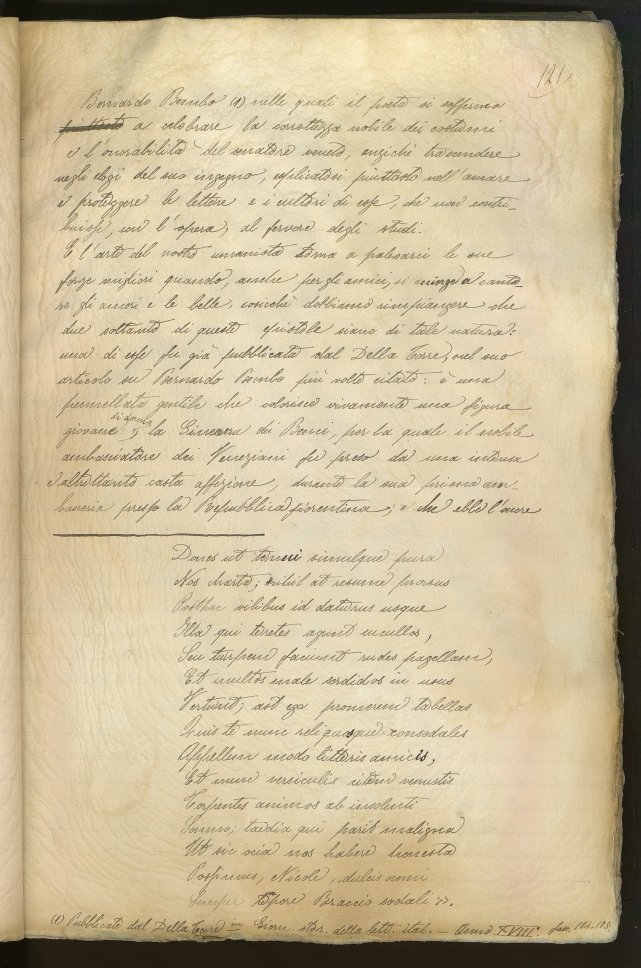 121
Bernardo Bembo (1) nelle quali il poeta si sofferma
piuttosto a celebrare la correttezza nobile dei costumi
e l'onorabilità del senatore veneto, anziché trascendere
negli elogi del suo ingegno, esplicatosi piuttosto nell'amare
e proteggere le lettere e i cultori di esse, che nel contri-
buisse, con l'opera, al fervore degli studi.
E l'arte del nostro umanista torna a palesarci le sue
forze migliori quando, anche per gli amici, si accinge a canta-
re gli amori e le belle, cosicché dobbiamo rimpiangere che
due soltanto di queste epistole siano di tale natura:
una di esse fu già pubblicata dal Della Torre, nel suo
articolo su Bernardo Bembo più volte citato: è una
pennellata gentile che colorisce vivamente una figura
giovane di donna, la Ginevra dei Benci, per la quale il nobile
ambasciatore dei Veneziani fu preso da una intensa
e altrettanto casta affezione, durante la sua prima am
basceria presso la Repubblica fiorentina; e che ebbe l'onore
Dones ut simulque pura
Nos charta; nihil at resumi prorsus
Posthac vilibus id daturus usque
Illa qui teretes agunt cucullos,
Seu turpem faciunt rudes papellam,
Et multos male sordidos in usus
Vertunt; ast ego promerem tabellas
Quis te nunc reliquosque consodales
Appellem modo litteris amicis,
Et nunc versiculis citem venustis
Torpentes animos ab insolenti
Somno; taedia qui parit maligna
Ut sic ocia nos habere honesta
Possimus, Nicole, dulcis
Semper tempore Braccio sodali ».
(1) Pubblicate dal Della Torre in Giorn. stor. della lett. ital. - Anno XVIII. fasc. 104-105